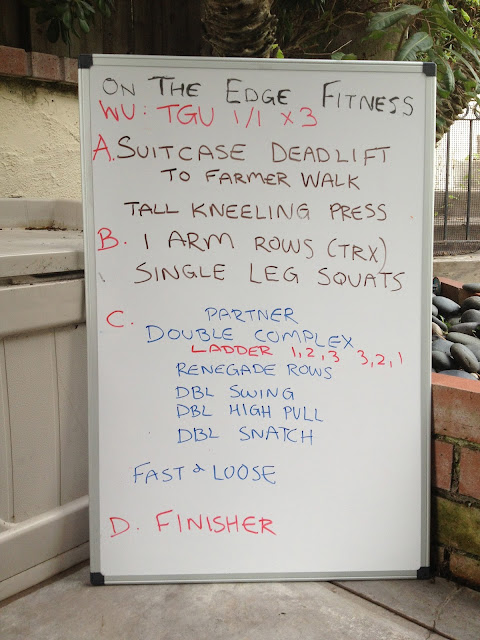 ON THE EDGE FITNESS
WU: TGU 1/1 x 3
A. SUITCASE DEADLIFT
TO FARMER WALK
TALL KNEELING PRESS
B. 1 ARM ROWS (TRX)
SINGLE LEG SQUATS
C. PARTNER
DOUBLE COMPLEX
LADDER 1,2,3 3,2,1
RENEGADE ROWS
DBL SWING
DBL HIGH PULL
DBL SNATCH
FAST & LOOSE
D. FINISHER